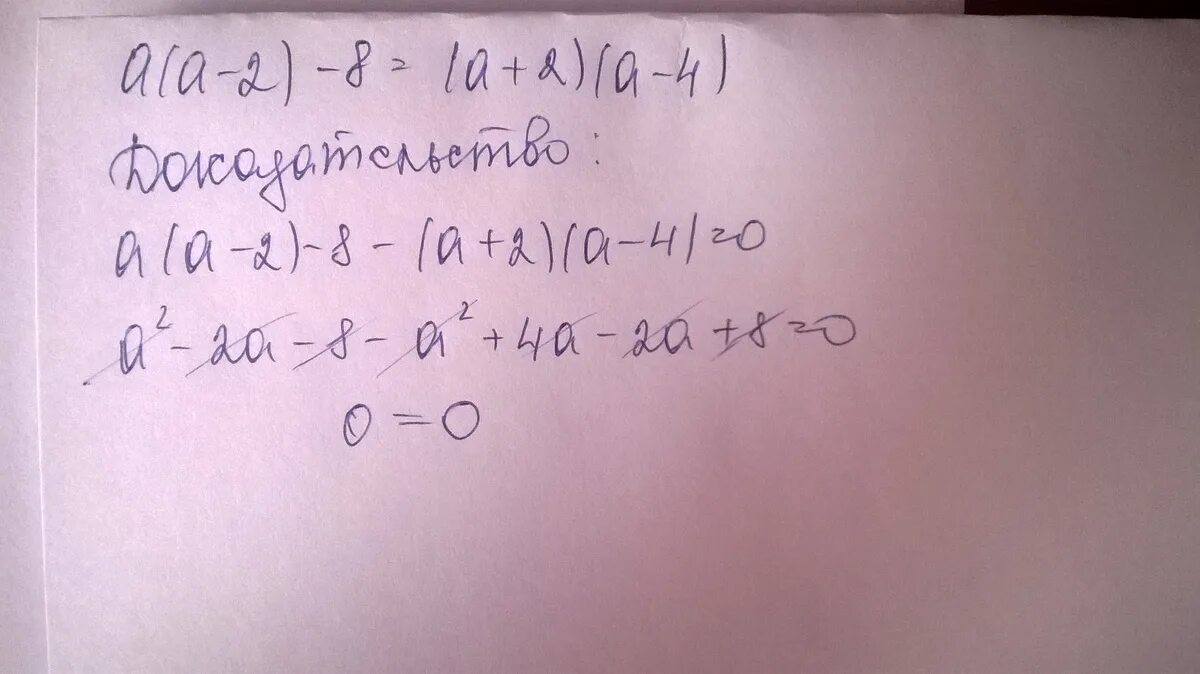 a(a-2)-8 = (a+2)(a-4)
Доказательство:
a(a-2)-8-(a+2)(a-4)=0
a²-2a-8-a²+4a-2a+8=0
0=0